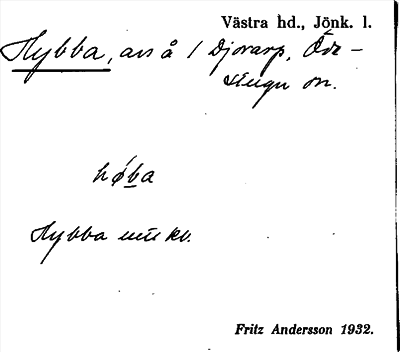 Västra hd., Jönk. l.
Hybba, avs å / Djorarp, Öde-
stugu sn.
hǿba
Hybba unit kv.
Fritz Andersson 1932.